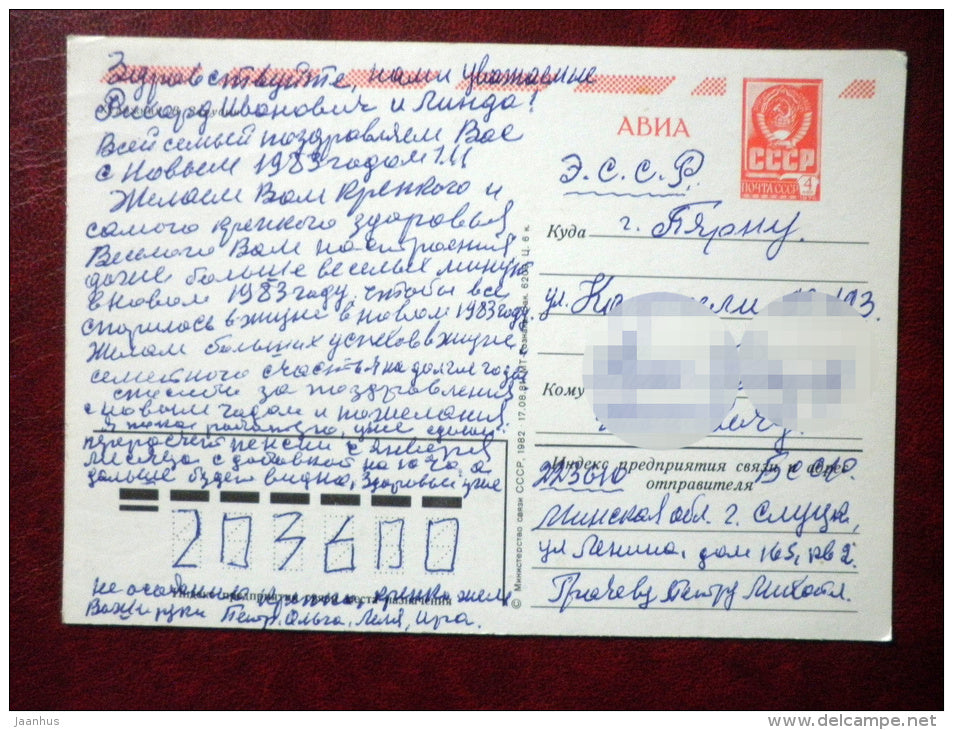 Здравствуйте, нами уважаемые
Рихард Иванович и Линда!
Всей семьей поздравляем Вас
с Новым 1983 годом!.!!
Желаем Вам крепкого и
самого крепкого здоровья
Веселого Вам настроения
даже больше веселых минут
в новом 1983 году, чтобы все
спорилось в жизни в новом 1983 году.
Желаем больших успехов в жизни
семейного счастья на долгие годы
спасибо за поздравления
с новым годом и пожелания
Я пока работаю, уже сделали
перерасчет пенсии с января
месяца с добавкой на 10%, а
дальше будет видно, Здоровье уже
не
крепко, крепко жмем
Ваши руки Петр, Ольга, Леля, Ира.
203600
Индекс предприятия связи места назначения
© Министерство связи СССР, 1982
17.08.81
Ц. 6 к.
АВИА
СССР
ПОЧТА СССР
4
Э.С.С.Р.
Куда г. Пярну.
ул.
Кому
Индекс предприятия связи и адрес
отправителя
223610 БССР.
Минская обл. г. Слуцк,
ул Ленина, дом 165, кв 2.
Грачеву Петру Михайл.
Jaanhus
www.delcampe.net